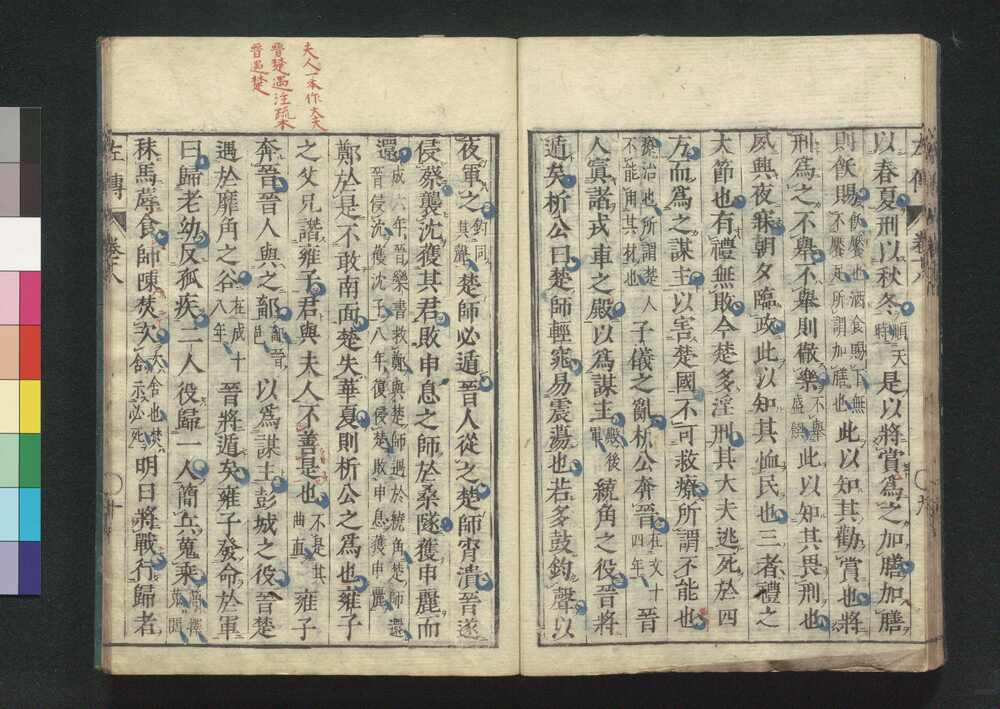 以春夏刑以秋冬順天時是以將賞爲之加膳加膳
則飫賜飫饜也酒食賜下無不饜足所謂加膳也此以知其勸賞也將
刑爲之不舉不舉則徹樂不舉盛饌此以知其畏刑也
夙興夜寐朝夕臨政此以知其恤民也三者禮之
大節也有禮無敗今楚多淫刑其大夫逃死於四
方而爲之謀主以害楚國不可救療所謂不能也
療治也所謂楚人不能用其材也子儀之亂析公奔晉在文十四年晉
人寘諸戎車之殿以爲謀主殿後軍繞角之役晉將
遁矣析公曰楚師輕窕易震蕩也若多鼓鈞聲以
夜軍之鈞同其聲楚師必遁晉人從之楚師宵潰晉遂
侵蔡襲沈獲其君敗申息之師於桑隧獲申麗而
還成六年晉欒書救鄭與楚師遇於繞角楚師還晉侵沈獲沈子八年復侵楚敗申息獲申麗
鄭於是不敢南面楚失華夏則析公之爲也雍子
之父兄譖雍子君與夫人不善是也不是其曲直雍子
奔晉晉人與之鄐鄐晉邑以爲謀主彭城之役晉楚
遇於靡角之谷在成十八年晉將遁矣雍子發命於軍
曰歸老幼反孤疾二人役歸一人簡兵蒐乘簡擇蒐閲
秣馬蓐食師陳焚次次舍也焚舍示必死明日將戰行歸者
夫人一本作大夫
晉楚遇注疏本
晉遇楚
左傳
卷十八